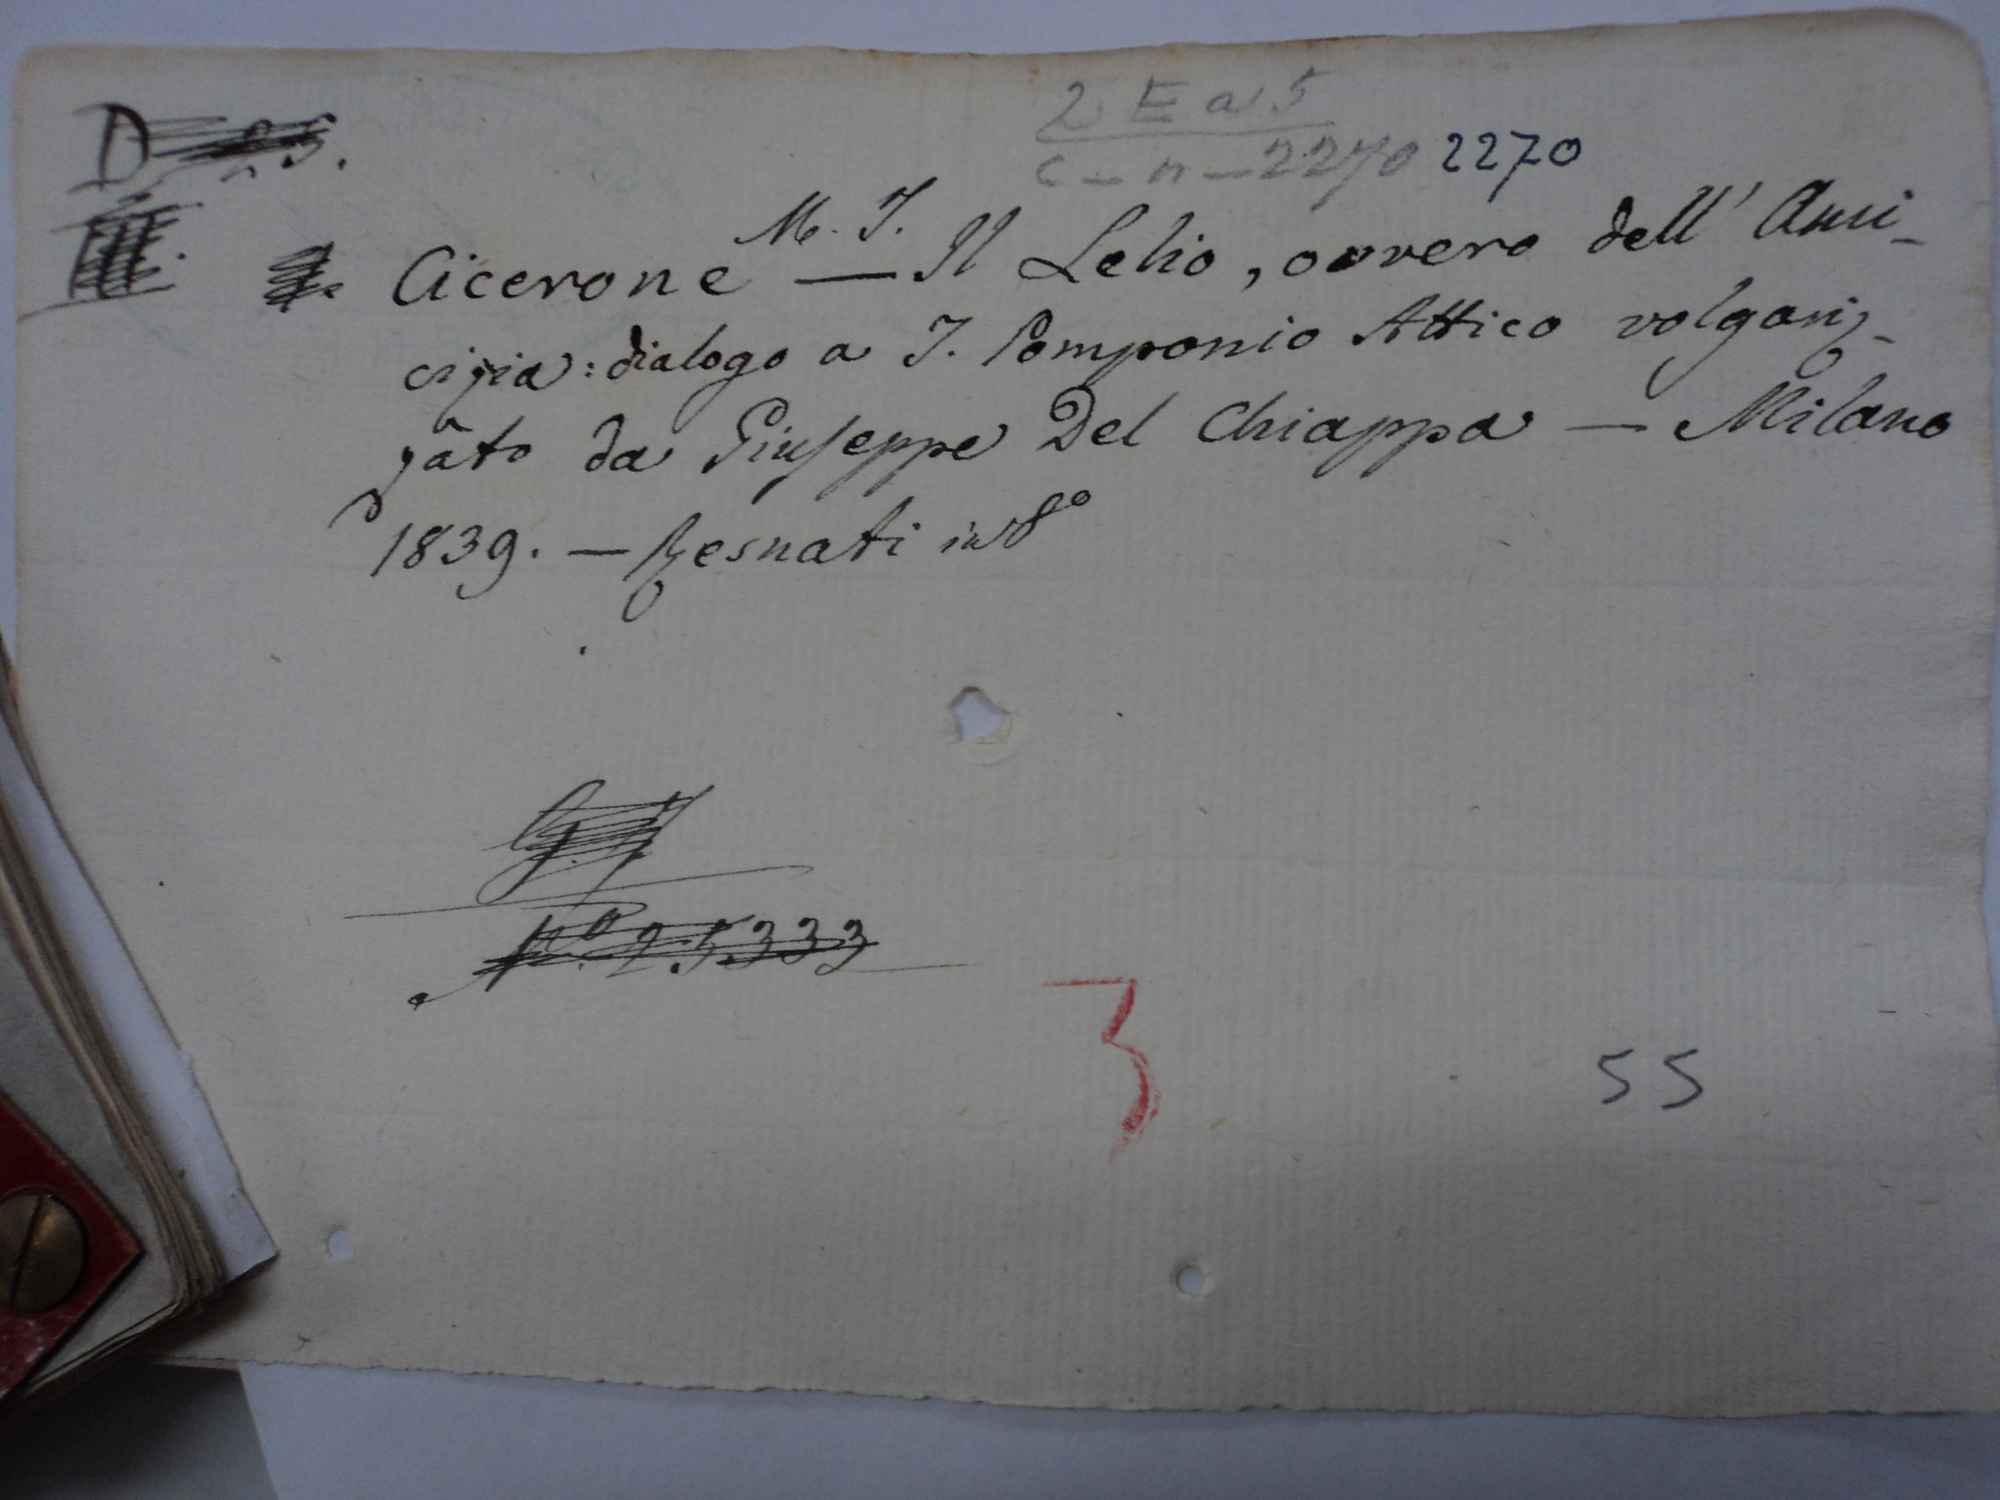 2 E a 5
c - n - 2270 2270
D
Cicerone M. T. — Il Lelio, ovvero dell' Ami-
cizia: dialogo a T. Pomponio Attico volgariz-
zato da Giuseppe Del Chiappa — Milano
1839. — Resnati in 8°
N.° 25333
3
55